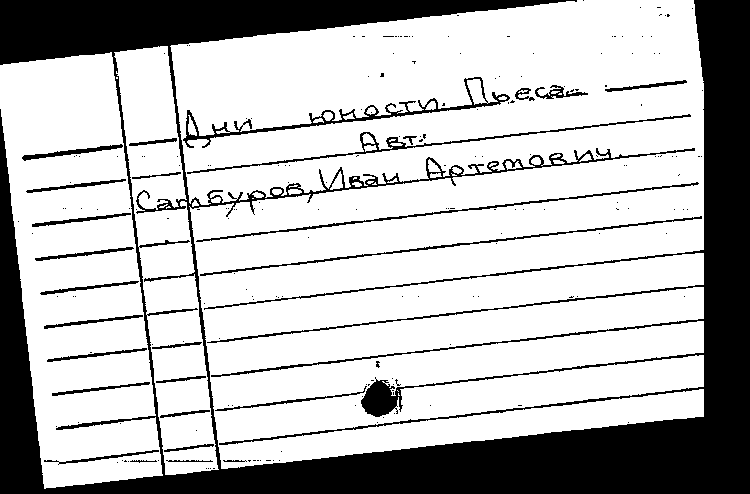 Дни юности. Пьеса.
Авт.:
Сатбуров, Иван Артемович.